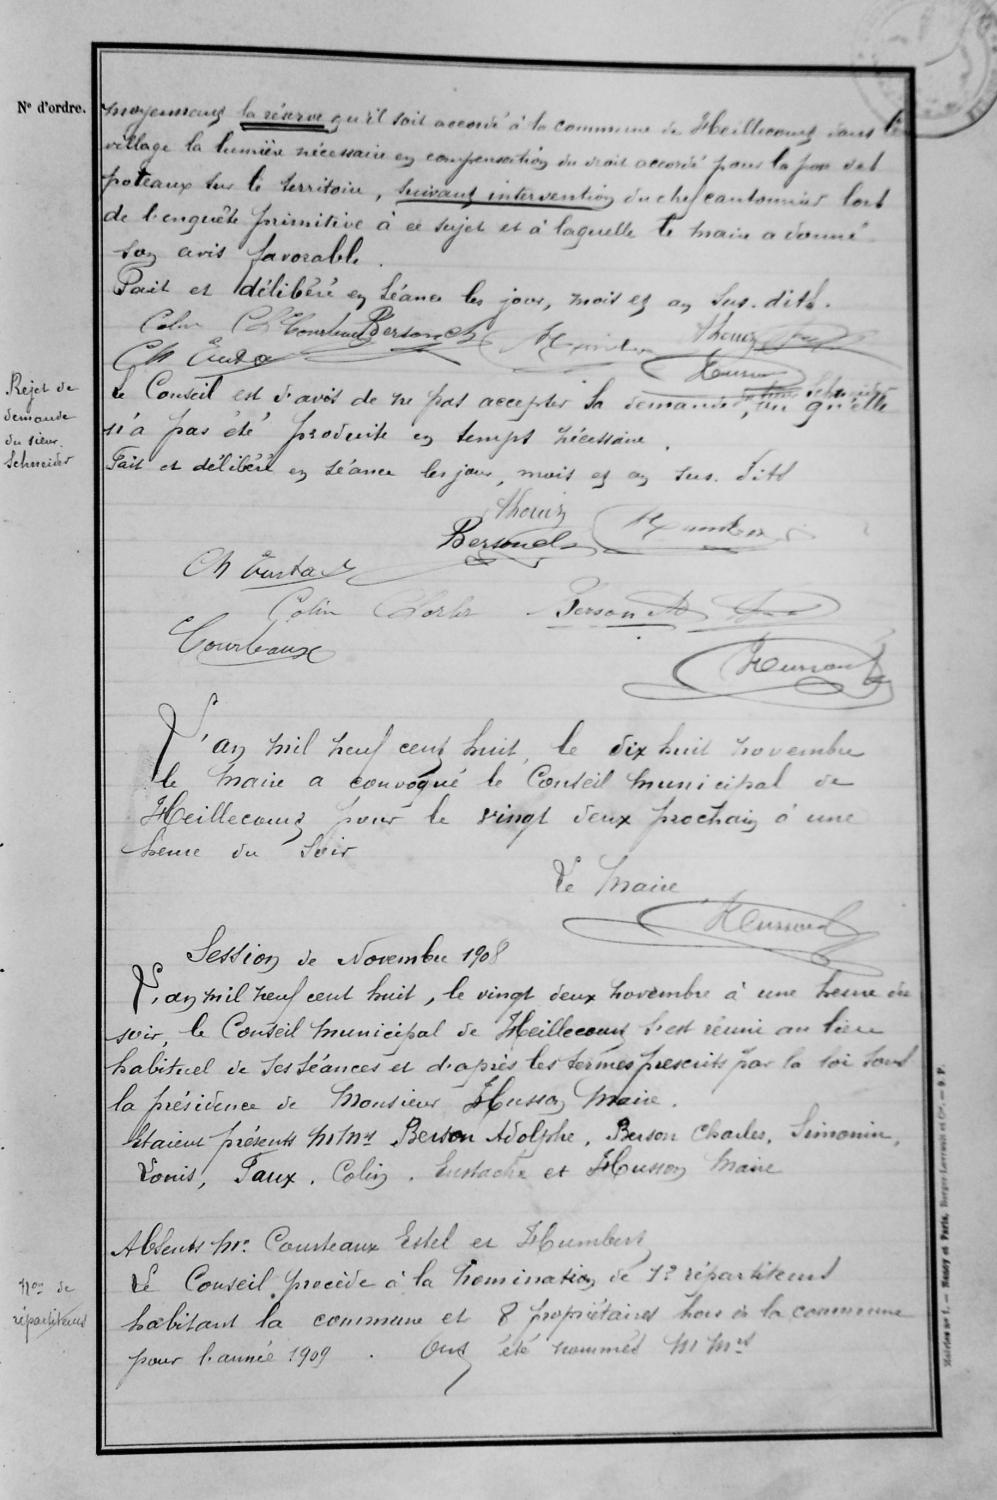 N° d'ordre.
moyennant la réserve qu'il soit accordé à la commune de Heillecourt dans le
village la lumière nécessaire en compensation du droit accordé pour la pose des
poteaux sur le territoire, suivant intervention du chef cantonnier lors
de l'enquête primitive à ce sujet et à laquelle le maire a donné
son avis favorable.
Fait et délibéré en séance les jour, mois et an sus-dits.
Colin Courteaux Berson Ch
Thouis
Ch Eustache
Husson
Rejet de
demande
du sieur
Schneider
Le Conseil est d'avis de ne pas accepter la demande, vu qu'elle
n'a pas été produite en temps nécessaire.
Fait et délibéré en séance les jour, mois et an sus-dits
Berson Ch
Humbert
Ch Eustache
Colin
Berson Ad
Courteaux
Husson
L'an mil neuf cent huit, le dix huit novembre
le Maire a convoqué le Conseil municipal de
Heillecourt pour le vingt deux prochain à une
heure du soir
Le Maire
Husson
Session de Novembre 1908
L'an mil neuf cent huit, le vingt deux novembre à une heure du
soir, le Conseil municipal de Heillecourt s'est réuni au lieu
habituel de ses séances et d'après les termes prescrits par la loi sous
la présidence de Monsieur Husson Maire.
Etaient présents MMrs Berson Adolphe, Berson Charles, Simonin,
Louis, Faux, Colin, Eustache et Husson Maire
Absents Mr. Courteaux Estel et Humbert
Non de
répartiteurs
Le Conseil procède à la nomination de 12 répartiteurs
habitant la commune et 8 propriétaires hors de la commune
pour l'année 1909. Ont été nommés MMrs
Mairies n° 1. — Nancy et Paris, Berger-Levrault et Cie. — 9 P.